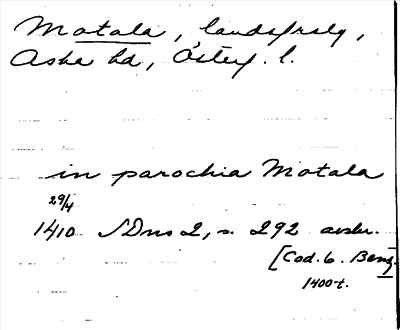 Motala, landsfrslg,
Aska hd, Österg. l.
in parochia Motala
29/4
1410 SDns 2, s. 292 avskr.
[Cod. b. Berg.
1400-t.